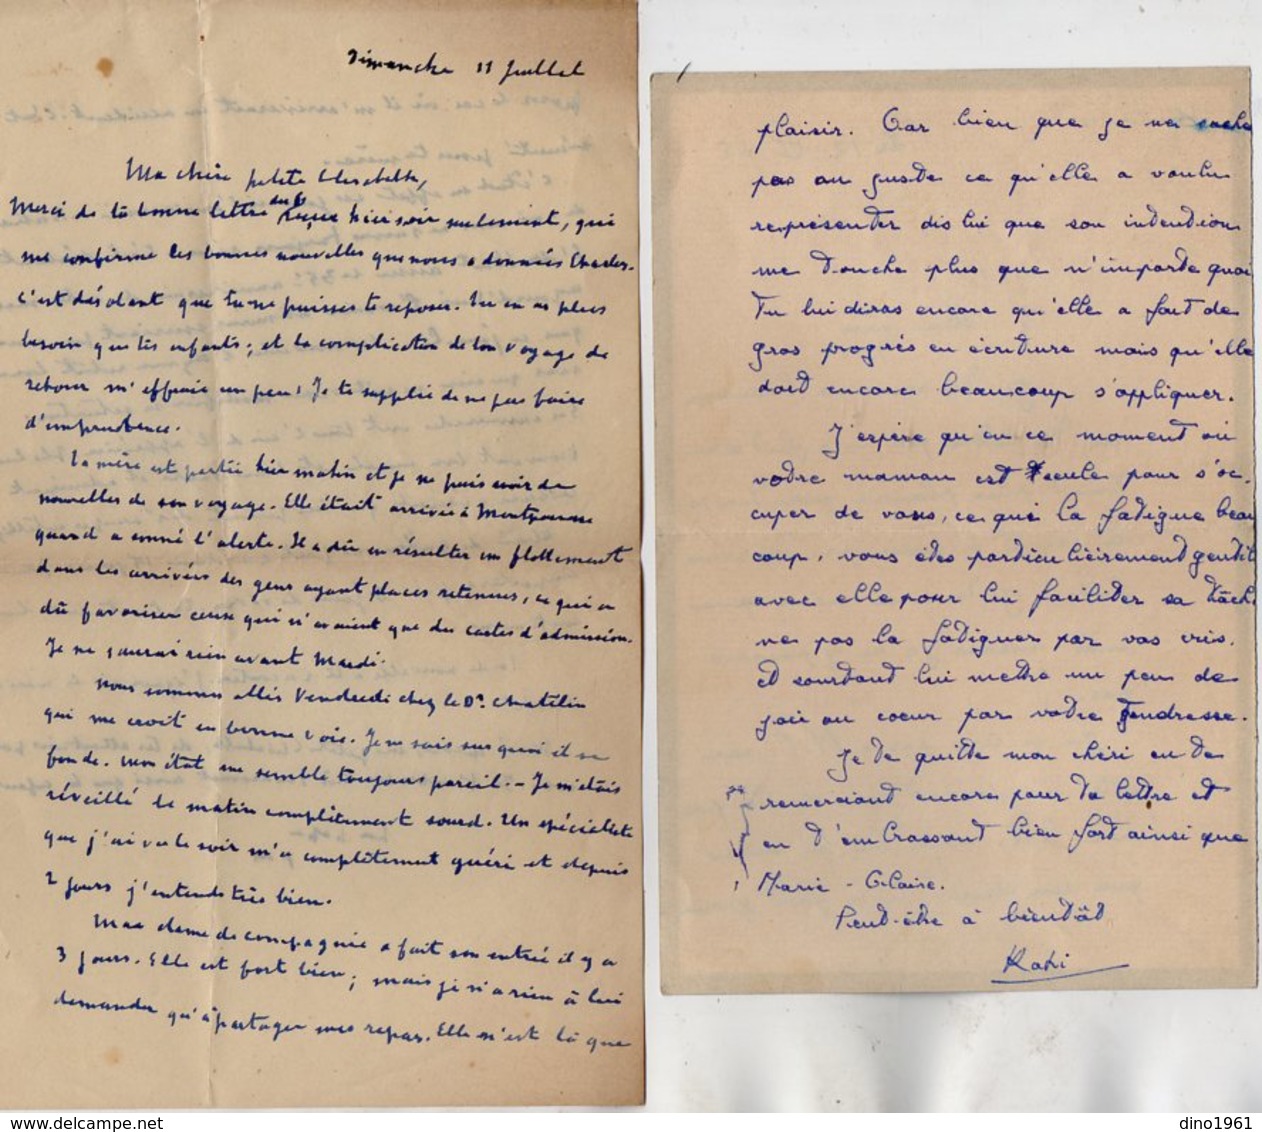 Dimanche 11 Juillet
Ma chère petite Elisabeth,
Merci de ta bonne lettre du 6 reçue hier soir seulement, qui
me confirme les bonnes nouvelles que nous a données Charles.
C'est désolant que tu ne puisses te reposer. Tu en as plus
besoin que tes enfants ; et la complication de ton voyage de
retour m'effraie un peu ! Je te supplie de ne pas faire
d'imprudence.
Ta mère est partie hier matin et je ne puis avoir de
nouvelles de son voyage. Elle était arrivée à Montparnasse
quand a sonné l'alerte. Il a dû en résulter un flottement
dans les arrivées des gens ayant places retenues, ce qui a
dû favoriser ceux qui n'avaient que des cartes d'admission.
Je ne saurai rien avant Mardi.
Nous sommes allés Vendredi chez le Dr. Chatelin
qui me croit en bonne voie. Je ne sais sur quoi il se
fonde. Mon état me semble toujours pareil. - Je m'étais
réveillé le matin complètement sourd. Un spécialiste
que j'ai vu le soir m'a complètement guéri et depuis
2 jours j'entends très bien.
Ma dame de compagnie a fait son entrée il y a
3 jours. Elle est fort bien ; mais je n'ai rien à lui
demander qu'à partager mes repas. Elle n'est là que
plaisir. Car bien que je ne sache
pas au juste ce qu'elle a voulu
représenter dis lui que son intention
me touche plus que n'importe quoi
Tu lui diras encore qu'elle a fait de
gros progrès en écriture mais qu'elle
doit encore beaucoup s'appliquer.
J'espère qu'en ce moment où
votre maman est seule pour s'oc-
cuper de vous, ce qui la fatigue beau
coup, vous êtes particulièrement gentil
avec elle pour lui faciliter sa tâche
ne pas la fatiguer par vos cris,
et surtout lui mettre un peu de
joie au coeur par votre tendresse.
Je te quitte mon chéri en te
remerciant encore pour ta lettre et
en t'embrassant bien fort ainsi que
Marie - Claire.
Peut-être à bientôt
Kati
dino1961